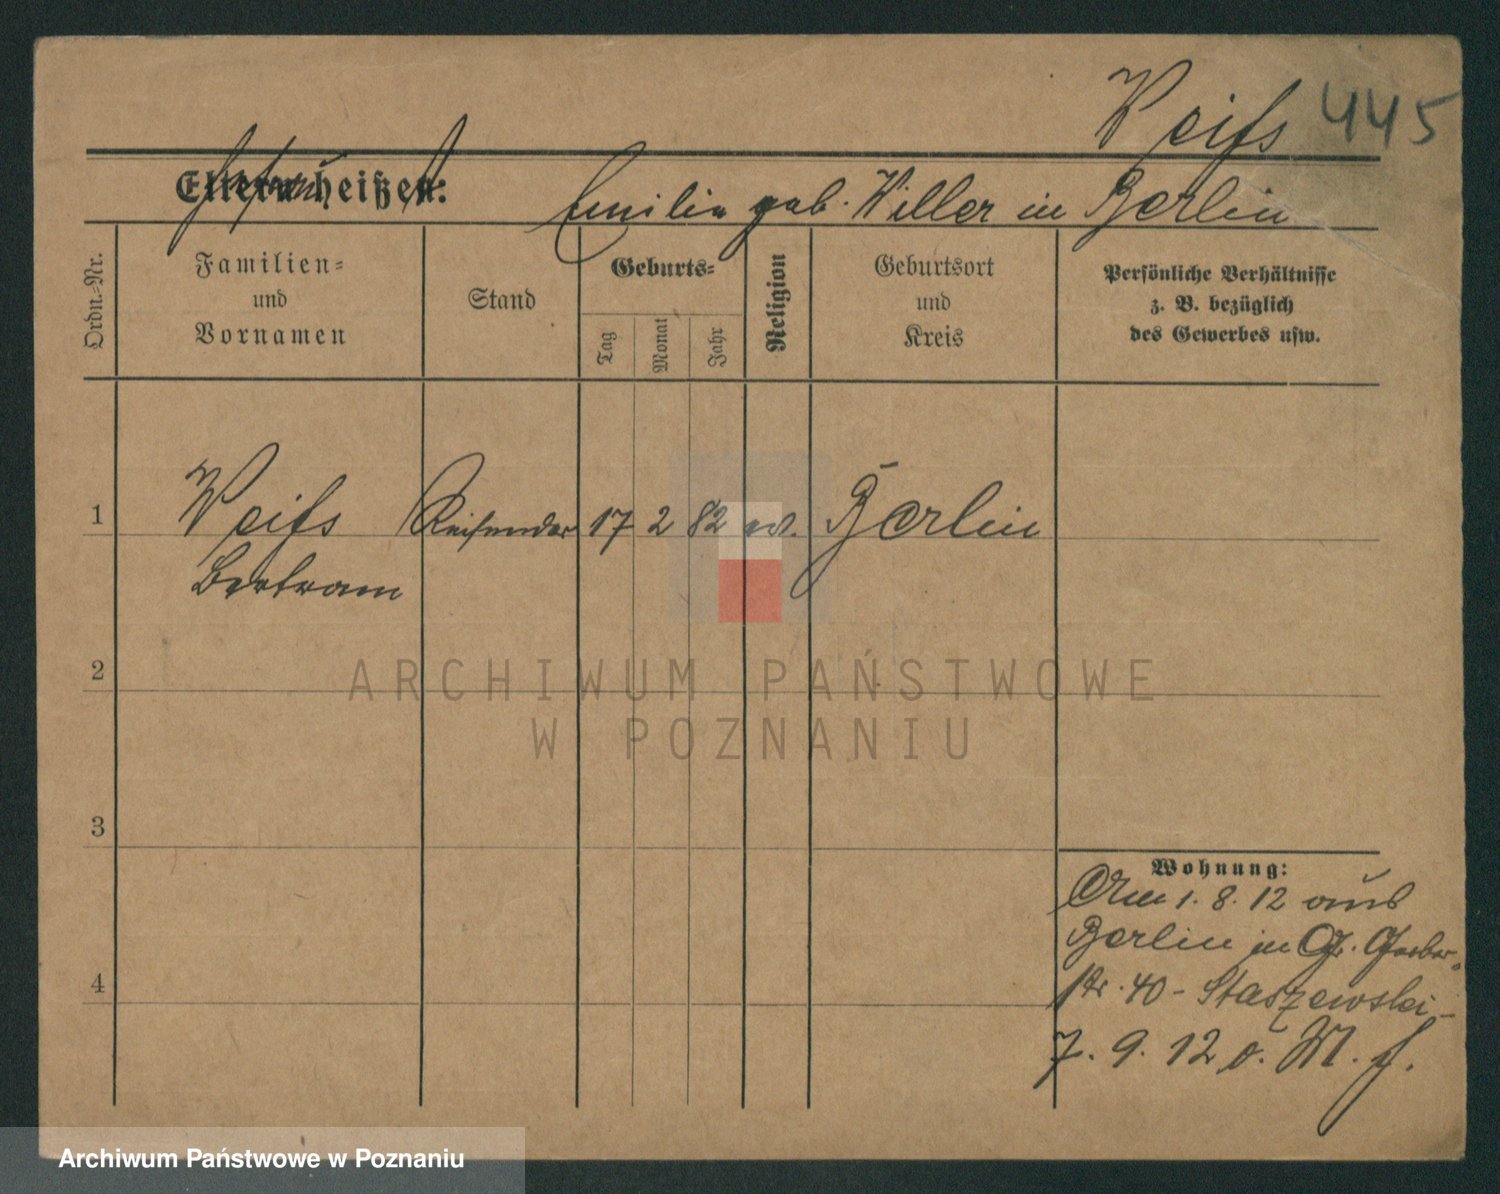 Weiß 445
Eltern heißen:
Emilie geb. Willer in Berlin
Ordn.=Nr.
Familien=
und
Vornamen
Stand
Geburts=
Tag
Monat
Jahr
Religion
Geburtsort
und
Kreis
Persönliche Verhältnisse
z. B. bezüglich
des Gewerbes usw.
1 Weiß Reisender 17 2 82 ev. Berlin
Bertram
2
3
4
Wohnung:
Am 1. 8. 12 aus
Berlin in Gr. Gerber-
str. 40 - Staszewski -
7. 9. 12 o. M. f.
ARCHIWUM PAŃSTWOWE
W POZNANIU
Archiwum Państwowe w Poznaniu